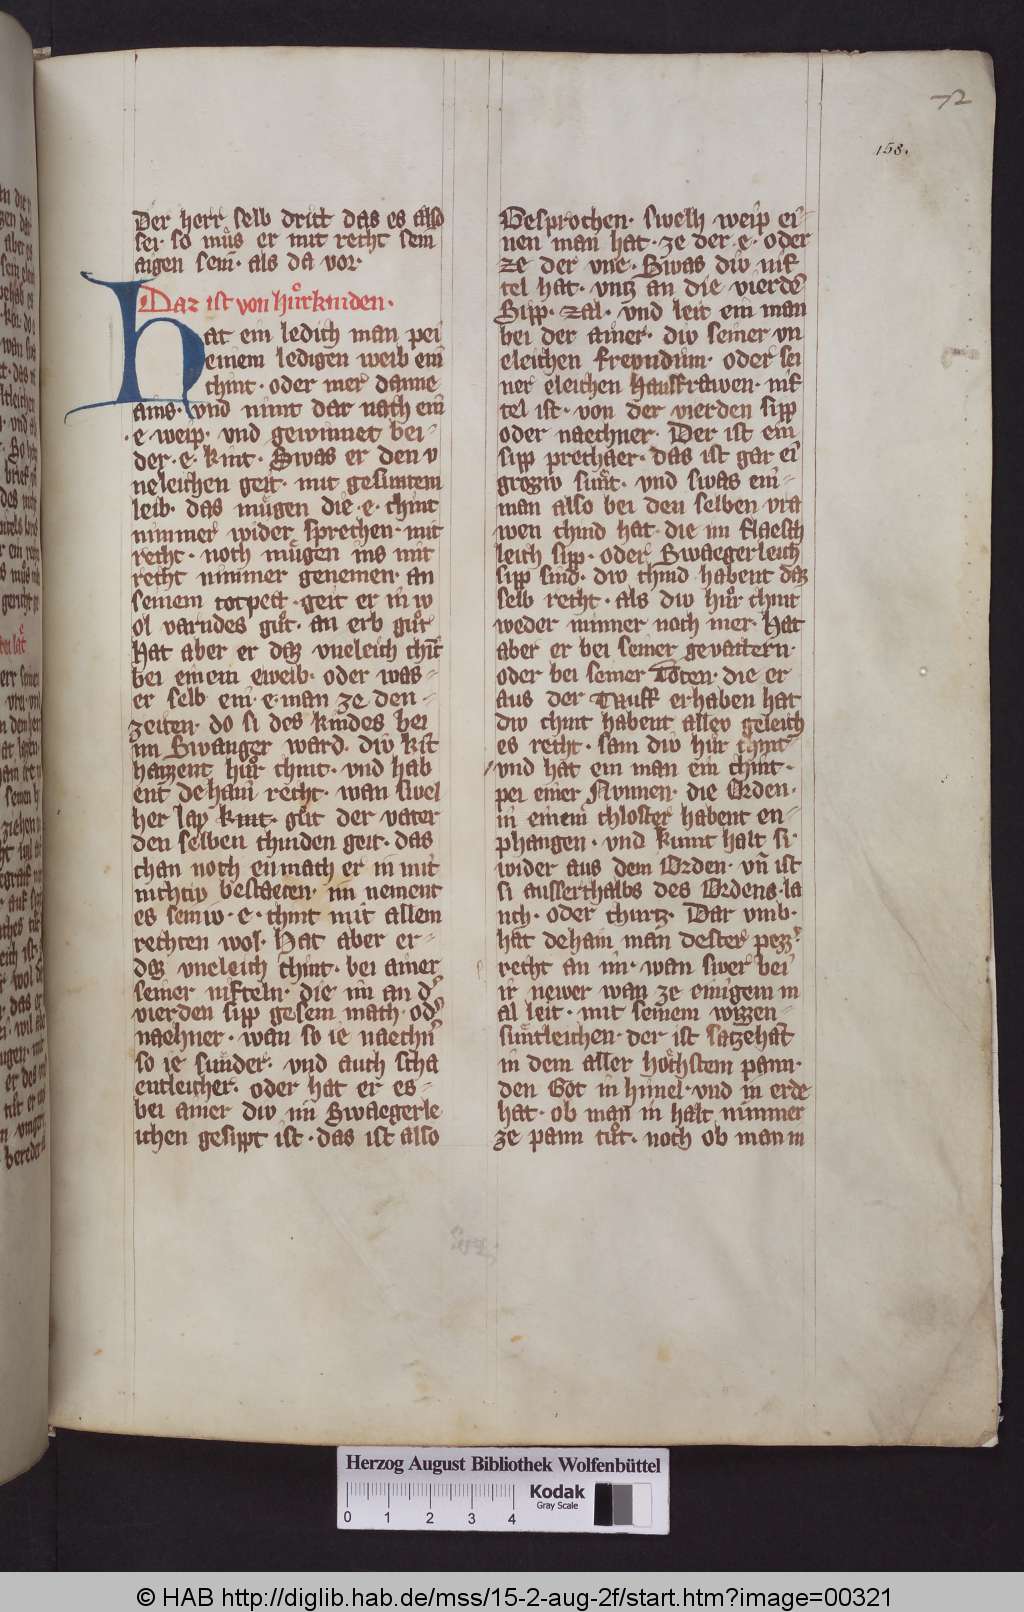 72
158.
Der herr selb dritt das es also
sei· so můs er mit recht sein
aigen sein· als da vor·
Daz ist von hůrkinden·
Hat ein ledich man pei
einem ledigen weib ein
chint· oder mer danne
ains· vnd nimt dar nach ein
·e· weip· vnd gewinnet bei-
der·e· kint· Swas er den v
neleichen geit· mit gesuntem
leib· das mügen die·e· chint
nimmer wider sprechen· mit
recht· noch mügen ins mit
recht nimmer genemen· an
seinem totpett· geit er in w
ol varndes gůt· an erb gůt
Hat aber er daz vneleich chint
bei einem eweib· oder was-
er selb ein·e·man ze den-
zeiten· do si des kindes bei
im Swanger ward· diw kint
haizzent hůr chint· vnd hab
ent dehain recht· wan swel
her lay kint· gůt der vater
den selben chinden geit· das
chan noch enmach er in mit
nichtiv bestaeten· im nement
es seiniv·e·chint mit allem
rechten wol· Hat aber er-
daz vneleich chint· bei ainer
seiner nifteln· die im an d'
vierden sipp gesein mach· od'
naehner· wan so ie naechn'
so ie sünder· vnd auch scha
entleicher· oder hat er es-
bei ainer diw im Swaegerle
ichen gesippt ist· das ist also
Gesprochen· swelh weip ei-
nen man hat· ze der·e· oder
ze der vne· Swas diw nif
tel hat· vntz an die vierdē
Sipp· zal· vnd leit ein man
bei der ainer· diw seiner vn
eleichen freundinn· oder sei
ner eleichen Hausfrawen· nif
tel ist· von der vierden sipp
oder naechner· Der ist ein
sipp prechaer· das ist gar ei
grozziv sünt· vnd swas ein-
man also bei den selben vra
wen chind hat· die im flaesch
leich sipp· oder Swaegerleich
sipp sind· diw chind habent daz
selb recht· als diw hůr chint
weder minner noch mer· Hat
aber er bei seiner gevattern·
oder bei seiner Toten· die er
aus der Tauff erhaben hat
diw chint habent allev geleich
es recht· sam diw hůr chint
vnd hat ein man ein chint·
pei einer Nunnen· die Orden·
in einem chloster habent en-
phangen· vnd kumt halt si·
wider aus dem Orden· vn̄ ist
si ausserthalbs des Ordens· la
nch· oder churtz· Dar vmb·
hat dehain man dester pezz'
recht an im· wan swer bei
ir newer wan ze einigem m
al leit· mit seinem wizzen-
süntleichen· der ist satzehat
in dem aller höhstem pann·
den Got in himel· vnd in erde
hat· ob man in halt nimmer
ze pann tůt· noch ob man in
Herzog August Bibliothek Wolfenbüttel
Kodak
Gray Scale
0 1 2 3 4
© HAB http://diglib.hab.de/mss/15-2-aug-2f/start.htm?image=00321